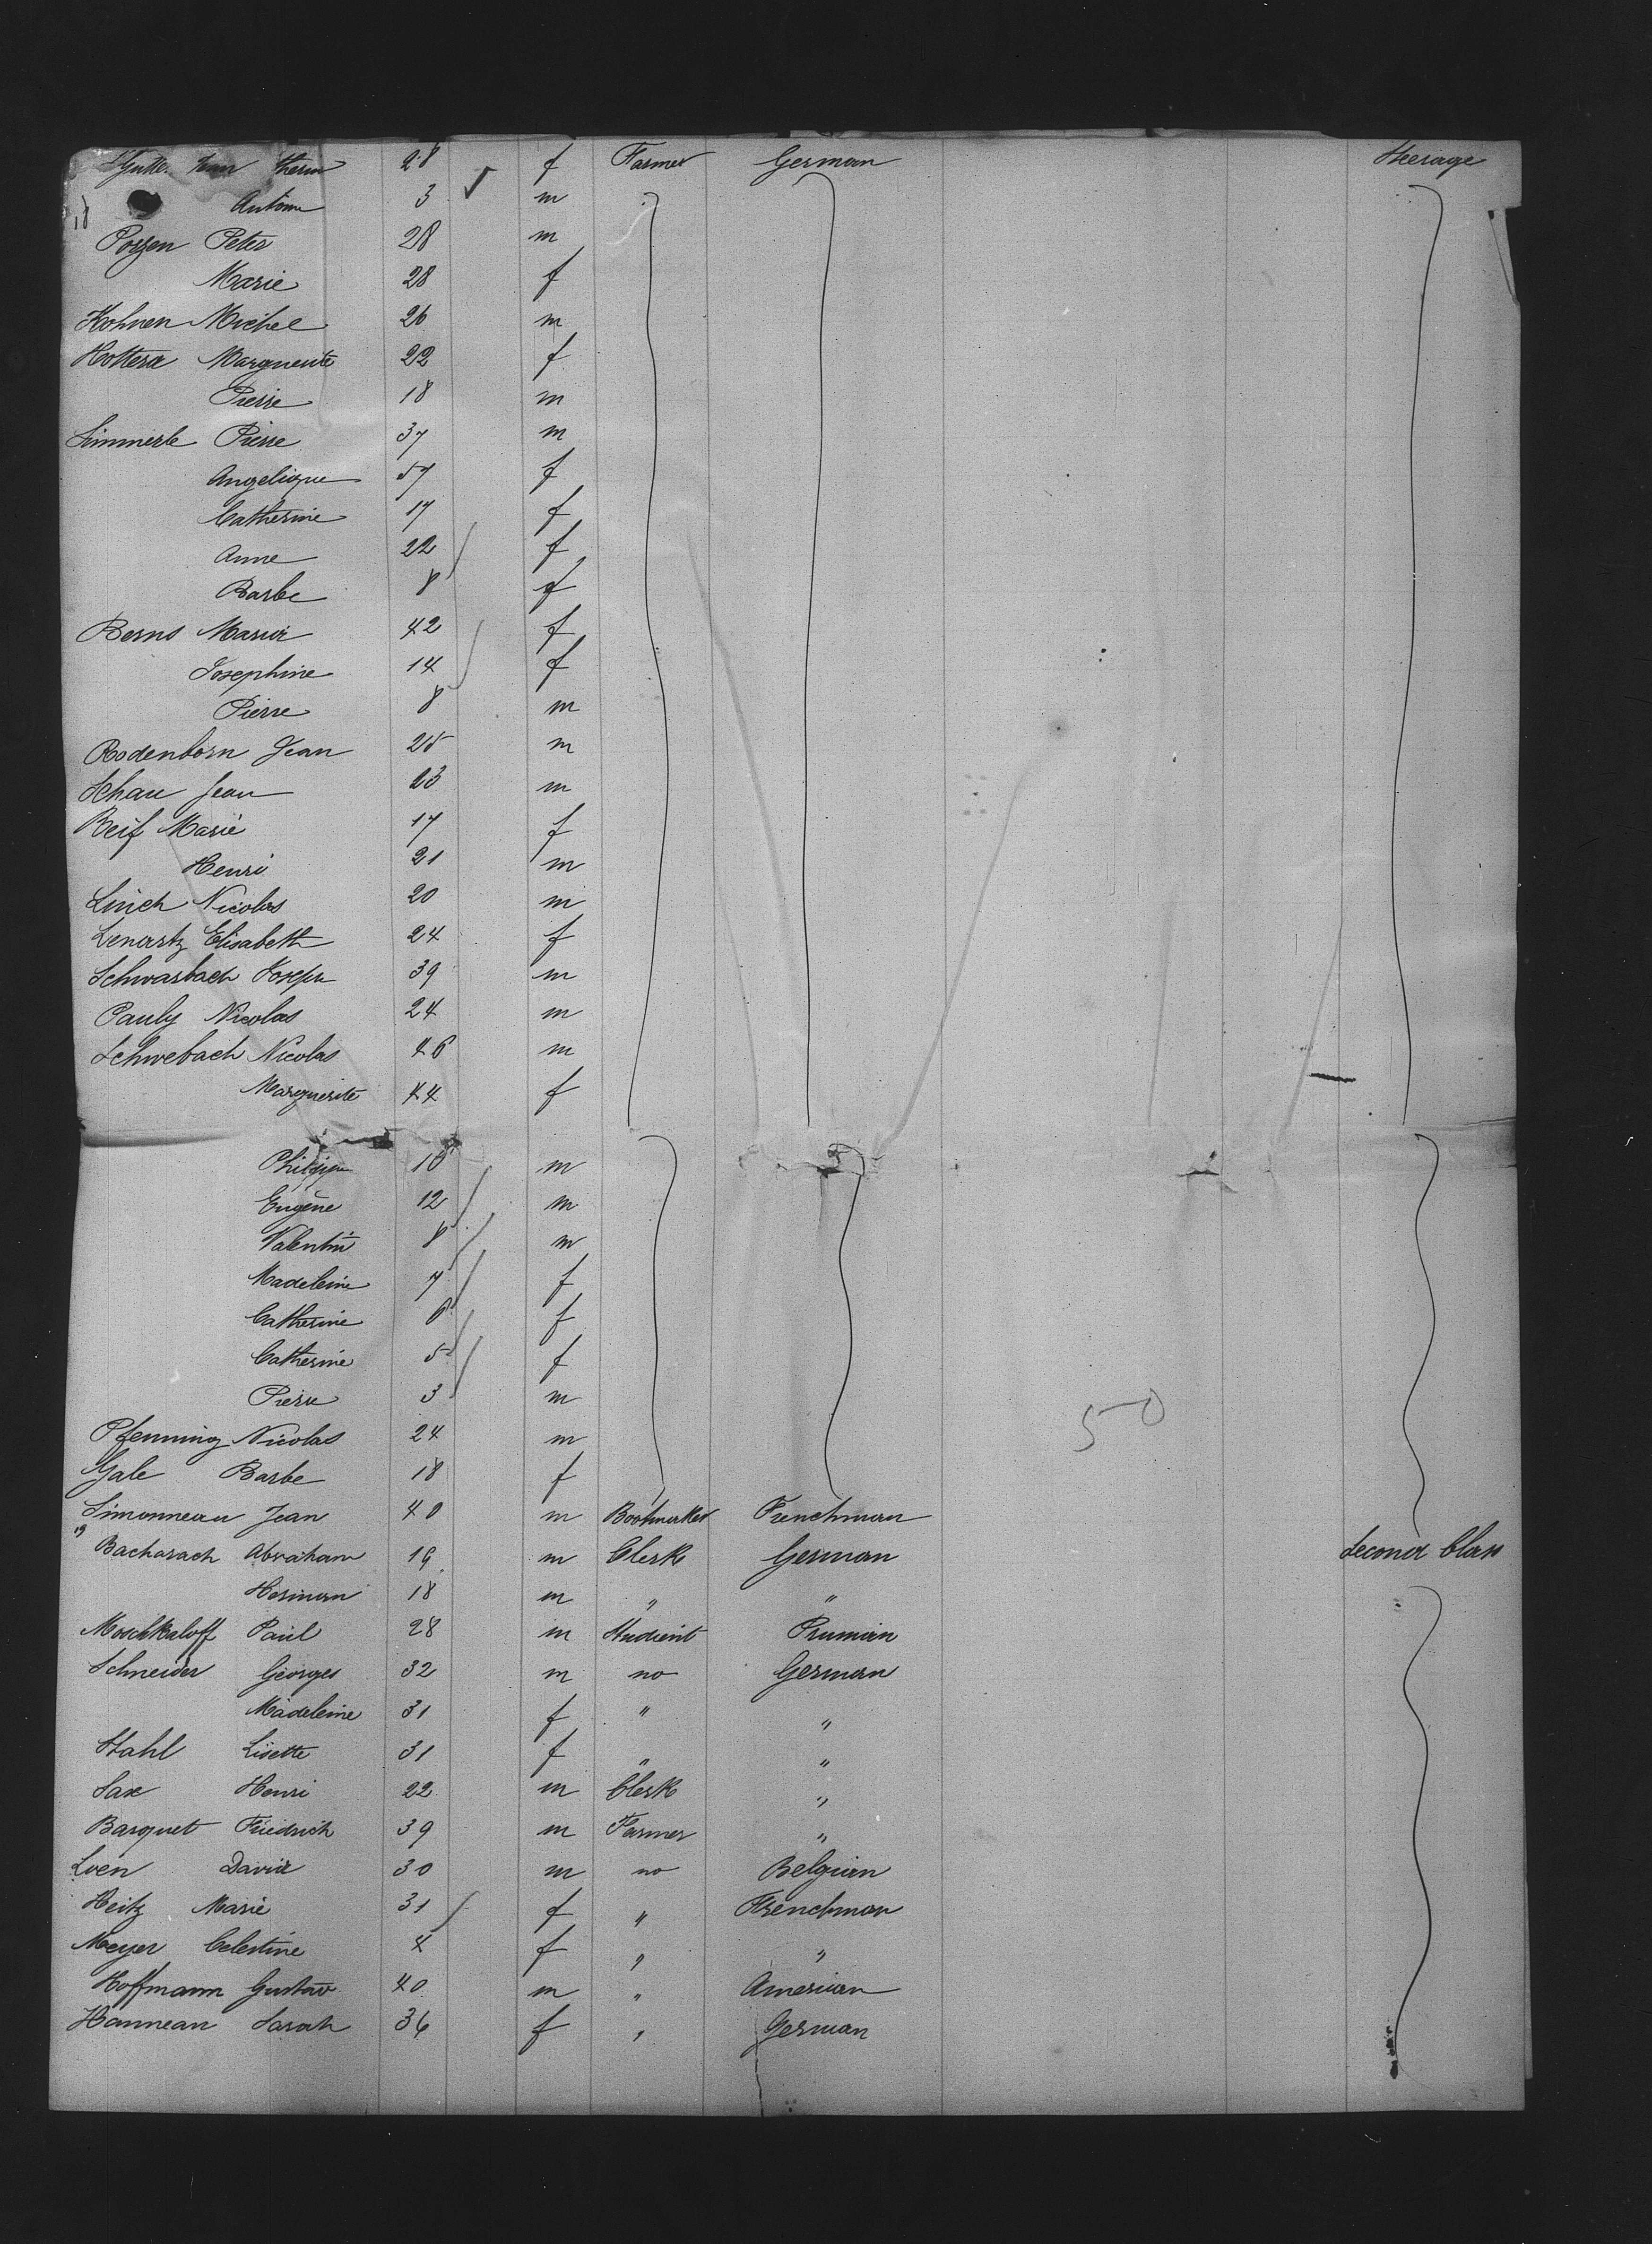 28 f Farmer German Steerage
Antoine 3 m
18
Porzen Peter 28 m
Marie 28 f
Kohnen Michel 26 m
Marguerite 22 f
Pierre 18 m
Simmerle Pierre 37 m
Angelique 57 f
Catherine 17 f
Anne 22 f
Barbe 8 f
Berns Maria 42 f
Josephine 14 f
Pierre 8 m
Rodenborn Jean 25 m
Schau Jean 23 m
Reif Marie 17 f
Henri 21 m
Linch Nicolas 20 m
Lenartz Elisabeth 24 f
Schwarbach Joseph 39 m
Pauly Nicolas 24 m
Schwebach Nicolas 46 m
Marguerite 44 f
Philippe m
Eugène 12 m
Valentin 8 m
Madeleine 7 f
Catherine 6 f
Catherine 5 f
Pierre 3 m
50
Pfenning Nicolas 24 m
Gale Barbe 18 f
Simonneau Jean 40 m Frenchman
19
Bacharach Abraham 19 m Clerk German Second Class
Herman 18 m " "
Moschkaloff Paul 28 m Studient
Schneider Georges 32 m no German
Madeleine 31 f " "
Stahl Lisette 31 f " "
Sax Henri 22 m Clerk "
Barquet Friedrich 39 m Farmer "
Loen David 30 m no Belgian
Heitz Marie 31 f " Frenchman
Meyer Celestine 4 f " "
Hoffmann Gustav 40 m " American
Hannean Sarah 36 f " German